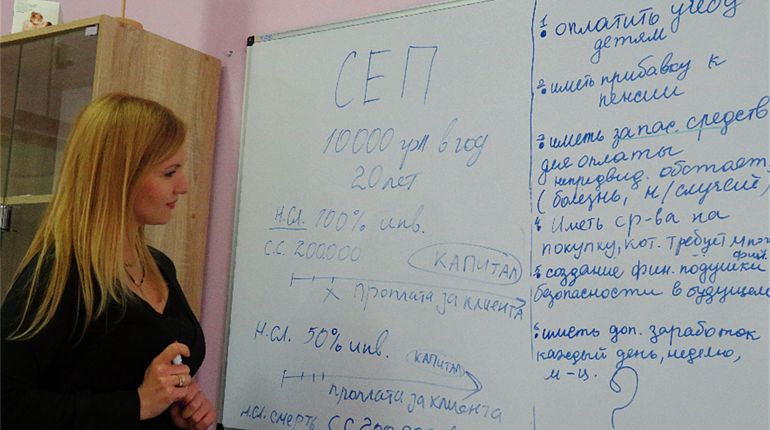 СЕП
10000 грн в год
20 лет
Н.Сл. 100% инв.
С.С. 200000
КАПИТАЛ
X проплата за клиента
Н.Сл. 50% инв.
КАПИТАЛ
проплата за клиента
Н.Сл. смерть С.С. 200 000
1. оплатить учебу
детям
2. иметь прибавку к
пенсии
3. иметь запас средств
для оплаты
непредвид. обстоят.
(болезнь, н/случай)
4. Иметь ср-ва на
покупку, кот. требует
5. создание фин. подушки
безопасности в будущем
6. иметь доп. заработок
каждый день, неделю,
м-ц. ?